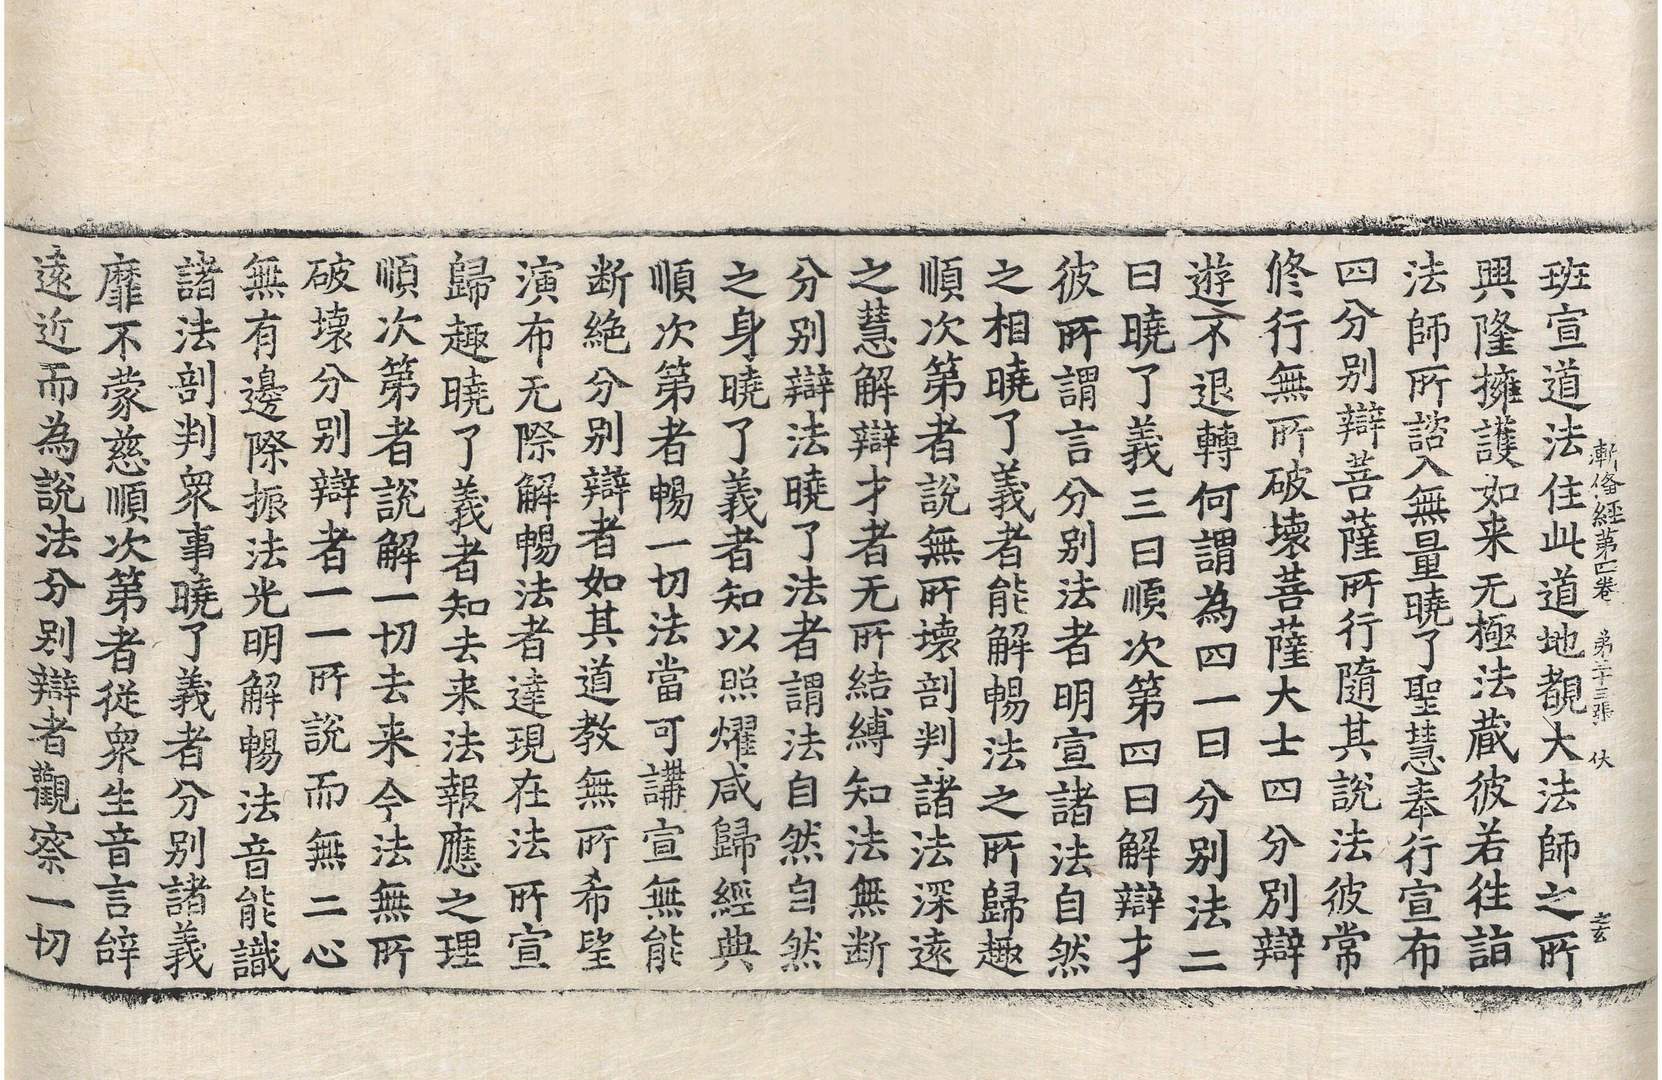 漸俻經第四卷 第二十三張 伏
班宣道法住此道地覩大法師之所
興隆擁護如来无極法藏彼若徃詣
法師所諮入無量曉了聖慧奉行宣布
四分别辯菩薩所行隨其說法彼常
修行無所破壞菩薩大士四分别辯
遊不退轉何謂為四一曰分别法二
曰曉了義三曰順次第四曰解辯才
彼所謂言分别法者明宣諸法自然
之相曉了義者能解暢法之所歸趣
順次第者說無所壞剖判諸法深遠
之慧解辯才者无所結縛知法無断
分别辯法曉了法者謂法自然自然
之身曉了義者知以照耀咸歸經典
順次第者暢一切法當可講宣無能
断絶分别辯者如其道教無所希望
演布无際解暢法者達現在法所宣
歸趣曉了義者知去来法報應之理
順次第者說解一切去来今法無所
破壞分别辯者一一所說而無二心
無有邊際振法光明解暢法音能識
諸法剖判衆事曉了義者分别諸義
靡不蒙慈順次第者從衆生音言辝
遠近而為說法分别辯者觀察一切